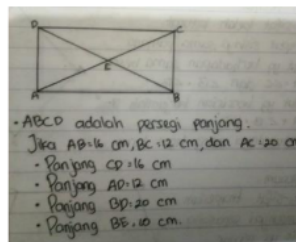 D C
E
A B
• ABCD adalah persegi panjang.
Jika AB=16 cm, BC=12 cm, dan AC=20 cm
• Panjang CD=16 cm
• Panjang AD=12 cm
• Panjang BD=20 cm
• Panjang BE=10 cm.